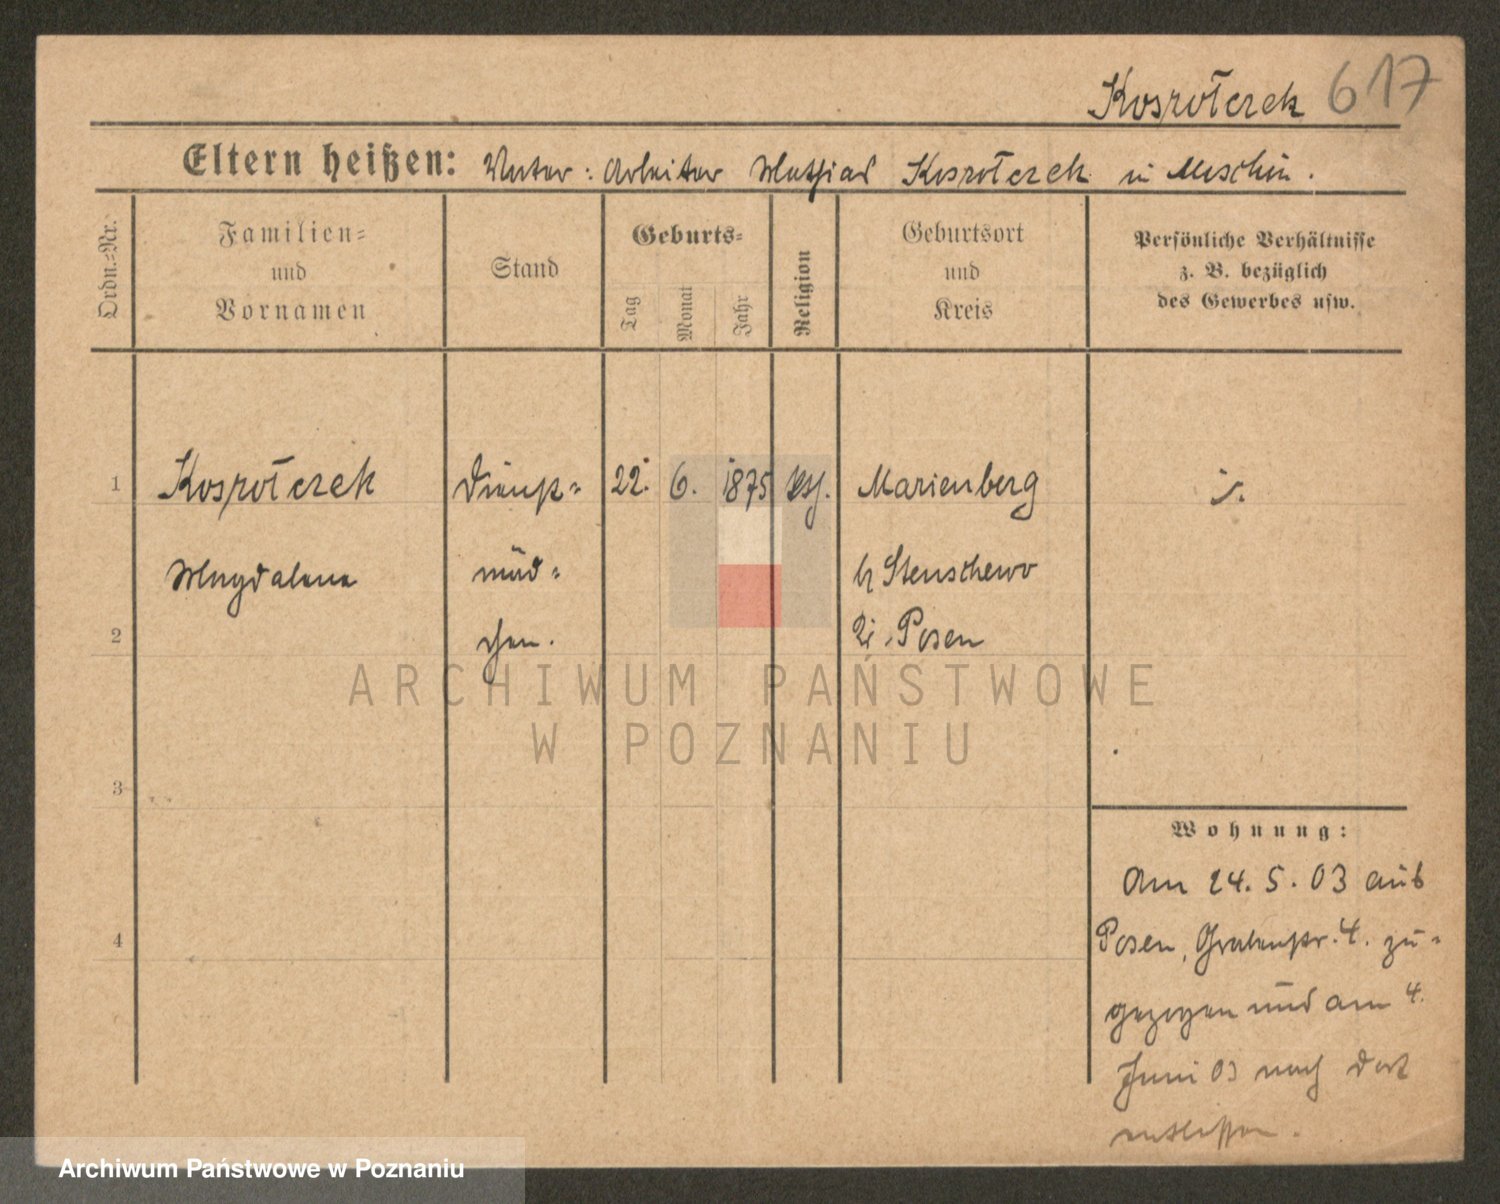 Kosrołczek 617
Eltern heißen: Vater: Arbeiter Mathias Kosrołczek in Moschin.
Ordn.-Nr.
Familien-
und
Vornamen
Stand
Geburts-
Tag
Monat
Jahr
Religion
Geburtsort
und
Kreis
Persönliche Verhältnisse
z. B. bezüglich
des Gewerbes usw.
1 Kosrołczek Dienst- 22. 6. 1875 kth. Marienberg ./.
Magdalena mäd- b/ Stenschewo
2 chen. Posen
3
4
Wohnung:
Am 24. 5. 03 aus
Posen, Grabenstr. 4. zu-
gezogen und am 4.
Juni 03 nach dort
entlassen.
ARCHIWUM PAŃSTWOWE
W POZNANIU
Archiwum Państwowe w Poznaniu